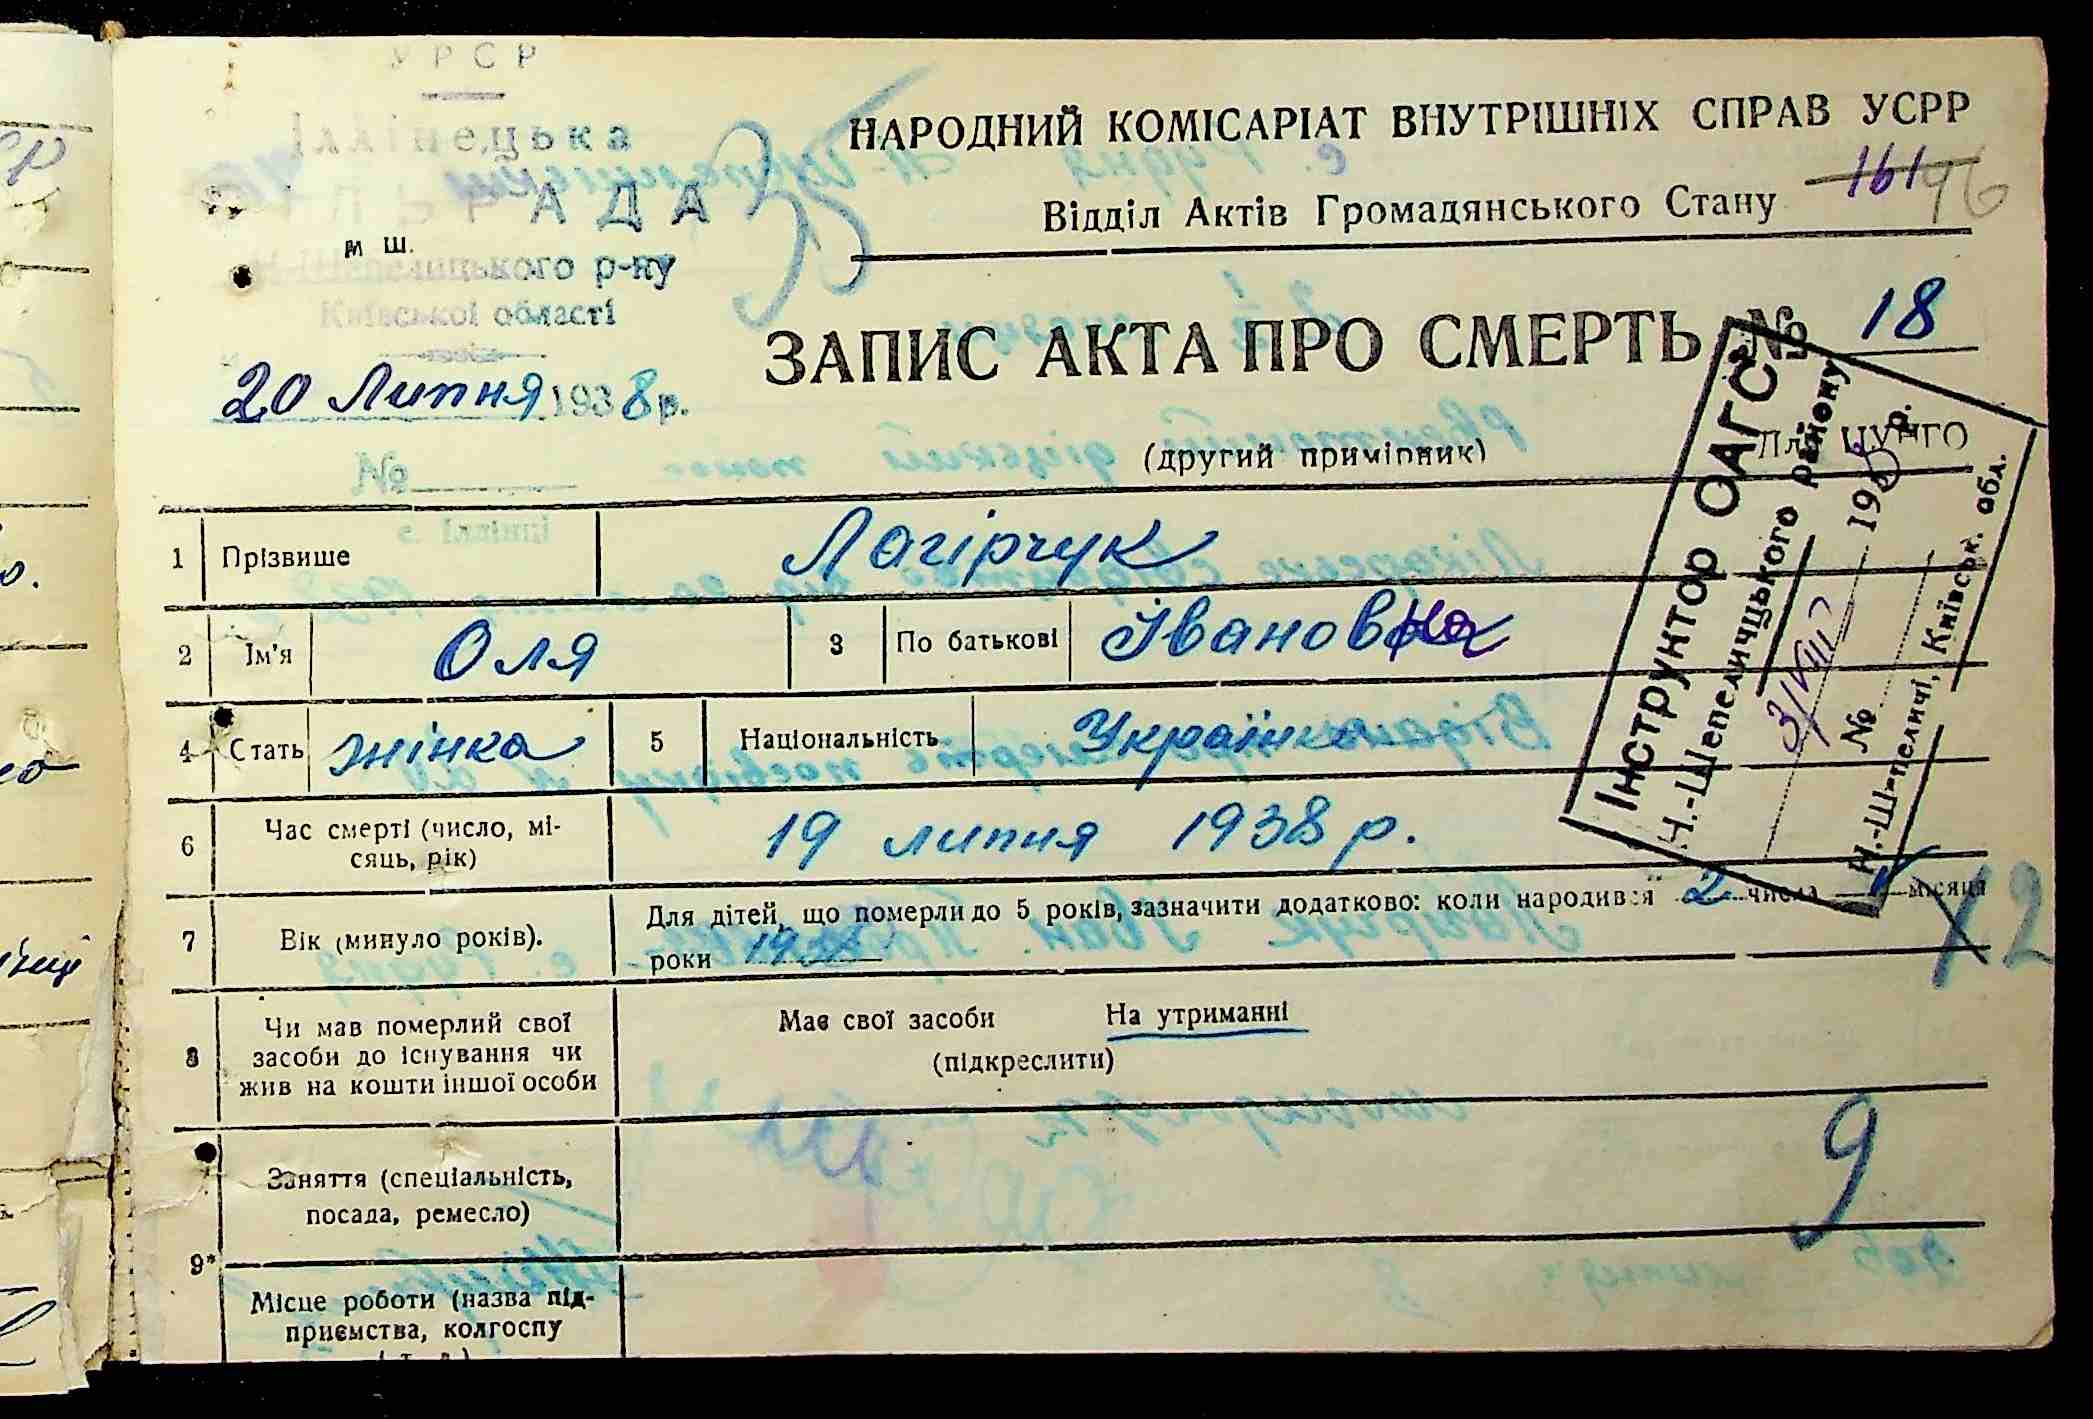 УРСР
Іллінецька
СІЛЬРАДА
Н-Шепеліцького р-ну
Київської області
20 Липня 1938 р.
№
с. Іллінці
НАРОДНИЙ КОМІСАРІАТ ВНУТРІШНІХ СПРАВ УСРР
Відділ Актів Громадянського Стану
161 96
35
ЗАПИС АКТА ПРО СМЕРТЬ № 18
(другий примірник)
Для ЦУНГО
Інструктор ОАГС
Н.-Шепеличцького району
31/VIII 193 р.
№
Н.-Шепеличі, Київськ. обл.
1 Прізвище Логірчук
2 Ім'я Оля 3 По батькові Івановна
4 Стать жінка 5 Національність Українка
6 Час смерті (число, мі-
сяць, рік) 19 липня 1938 р.
7 Вік (минуло років). Для дітей, що померли до 5 років, зазначити додатково: коли народився 2 числа місяця
роки
12
8 Чи мав померлий свої
засоби до існування чи
жив на кошти іншої особи
Має свої засоби На утриманні
(підкреслити)
9
9* Заняття (спеціальність,
посада, ремесло)
Місце роботи (назва під-
приємства, колгоспу